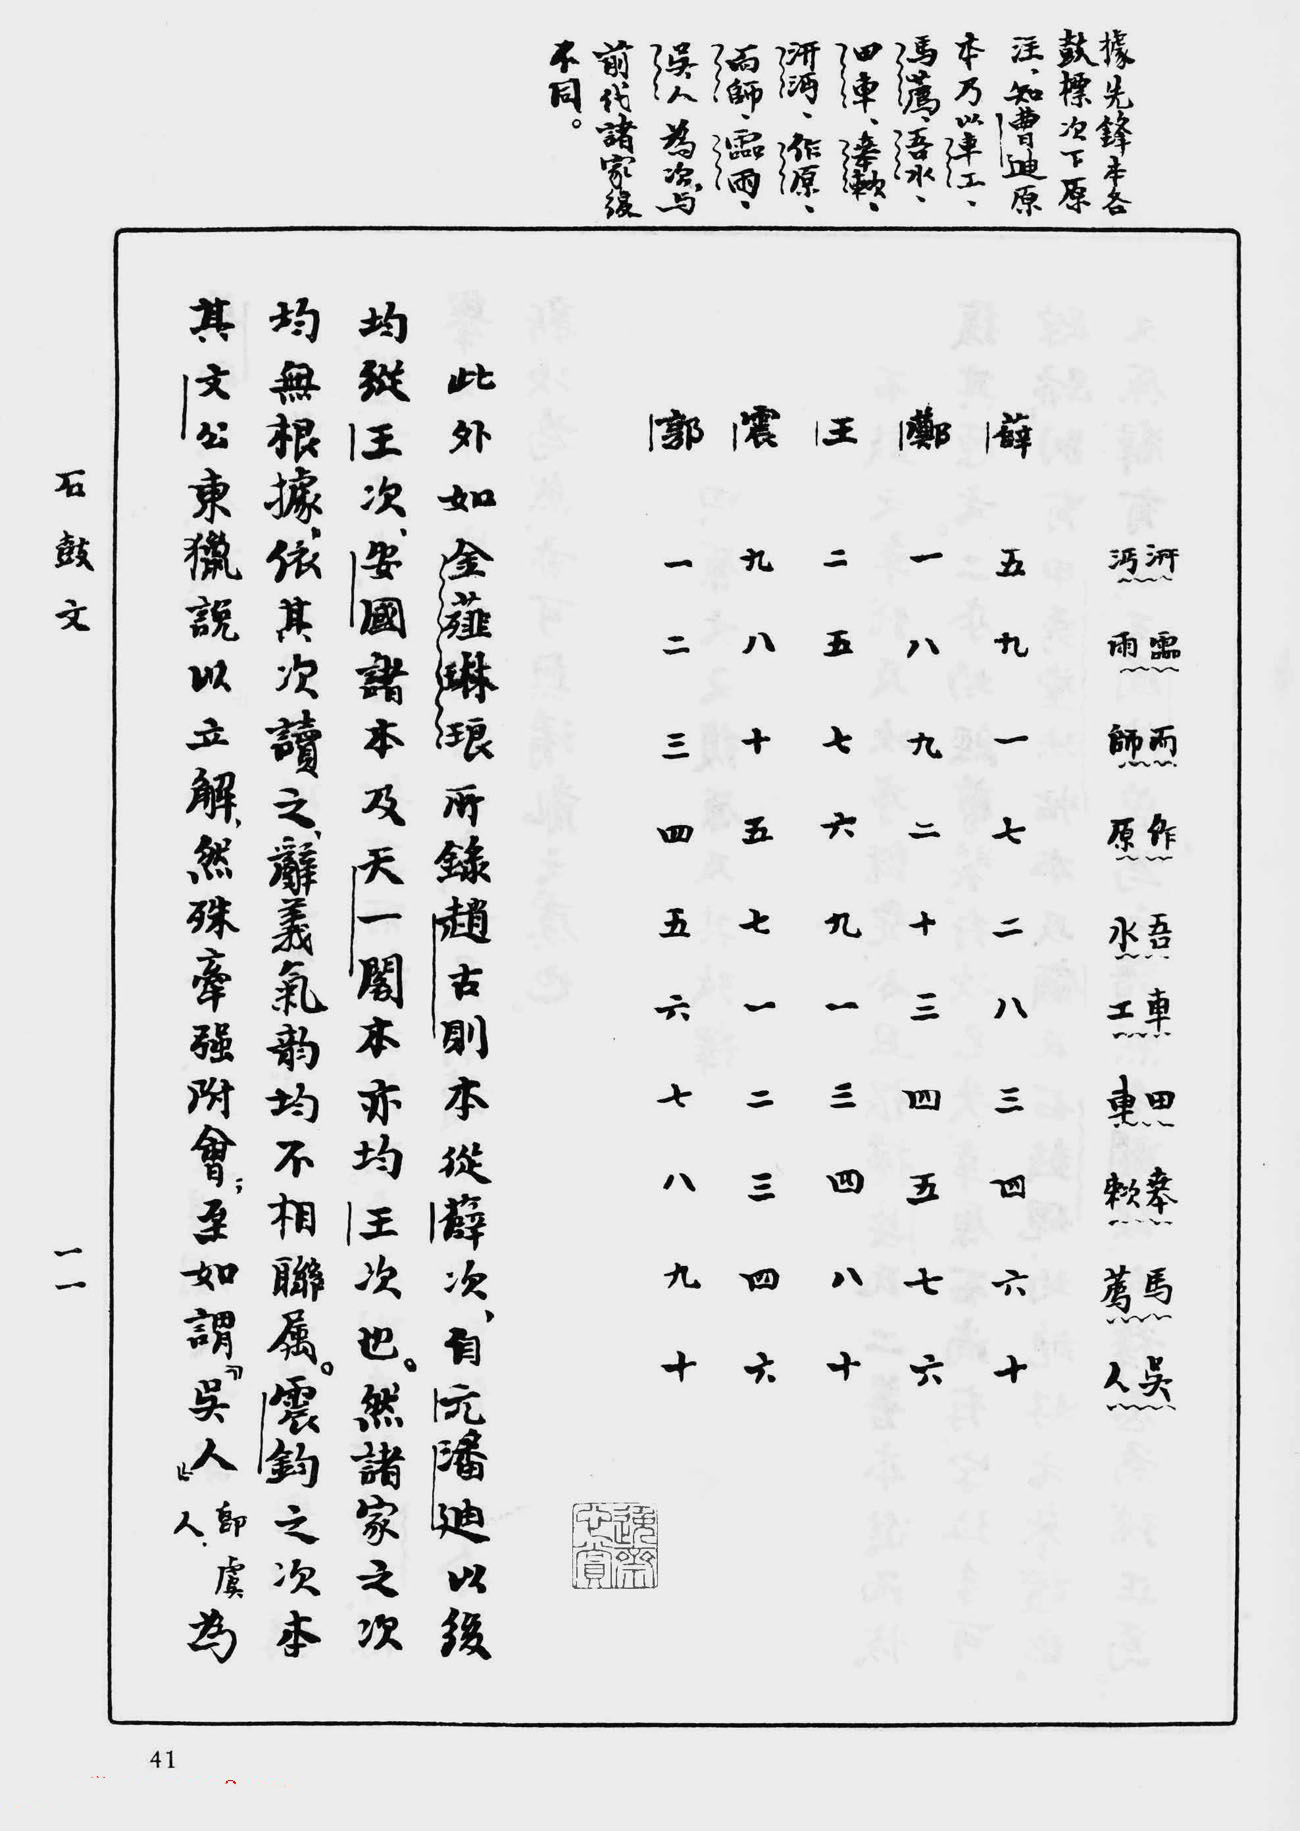 據先鋒本各
鼓標次下原
注、知曹迪原
本乃以車工、
馬薦、吾水、
田車、𠦪敕、
汧沔、作原、
而師、霝雨、
吳人為次、与
前代諸家俱
不同。
汧沔 霝雨 而師 作原 吾水 車工 田車 𠦪敕 馬薦 吳人
薛 五 九 一 七 二 八 三 四 六 十
鄭 一 八 九 二 十 三 四 五 七 六
王 二 五 七 六 九 一 三 四 八 十
震 九 八 十 五 七 一 二 三 四 六
郭 一 二 三 四 五 六 七 八 九 十
此外如金薤琳琅所錄趙古則本從薛次、自元潘迪以後
均從王次、安國諸本及天一閣本亦均王次也。然諸家之次
均無根據。依其次讀之、辭義氣韵均不相聯屬。震鈞之次本
其文公東獵說以立解、然殊牽强附會；至如謂「吳人」即虞人、為
石鼓文
一一
41